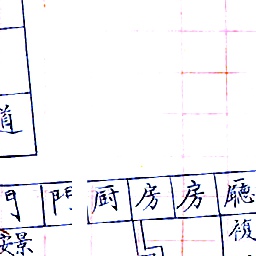 道
門 門 厨 房 房 廳
景 複